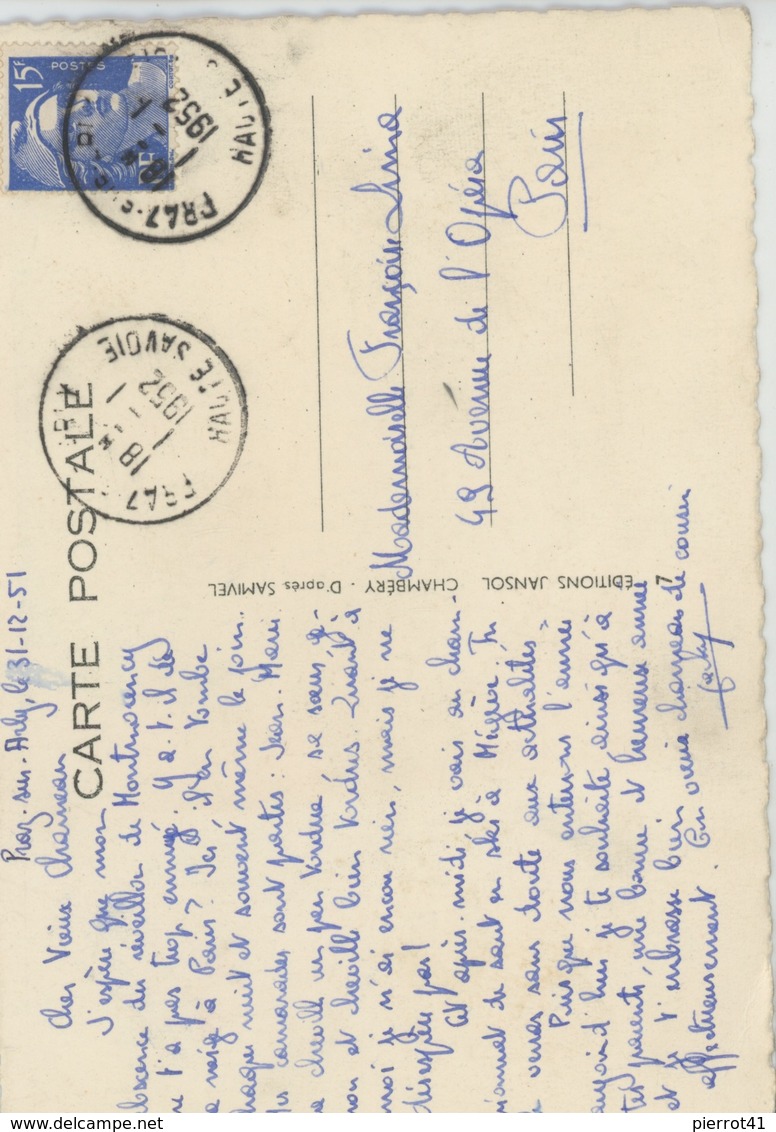 15F
POSTES
PRAZ
HAUTE
18 H
1 - 1
1952
PRAZ
HAUTE SAVOIE
18 H
1 - 1
1952
CARTE POSTALE
Mademoiselle Françoise
49 Avenue de l'Opéra
Paris
EDITIONS JANSOL CHAMBÉRY - D'après SAMIVEL
7
Praz-sur-Arly, le 31-12-51
Cher Vieux Chameau
J'espère que mon
absence du réveillon de Montmorency
ne t'a pas trop ennuyé. Y a-t-il de
la neige à Paris? Ici il en tombe
chaque nuit et souvent même le jour..
camarades sont partis : Jean-Marie
cheville un peu tordue se sans
et cheville bien tordus. Quant à
moi je n'ai encore rien, mais je ne
désespère pas!
Cet après-midi je vais au cham-
pionnat de saut en ski à Megève. Tu
le verras sans doute aux actualités.
Puisque nous entrons l'année
aujourd'hui je te souhaite ainsi qu'à
tes parents une bonne et heureuse année
et je t'embrasse bien
affectueusement. Ton vieux chameau de cousin
pierrot41